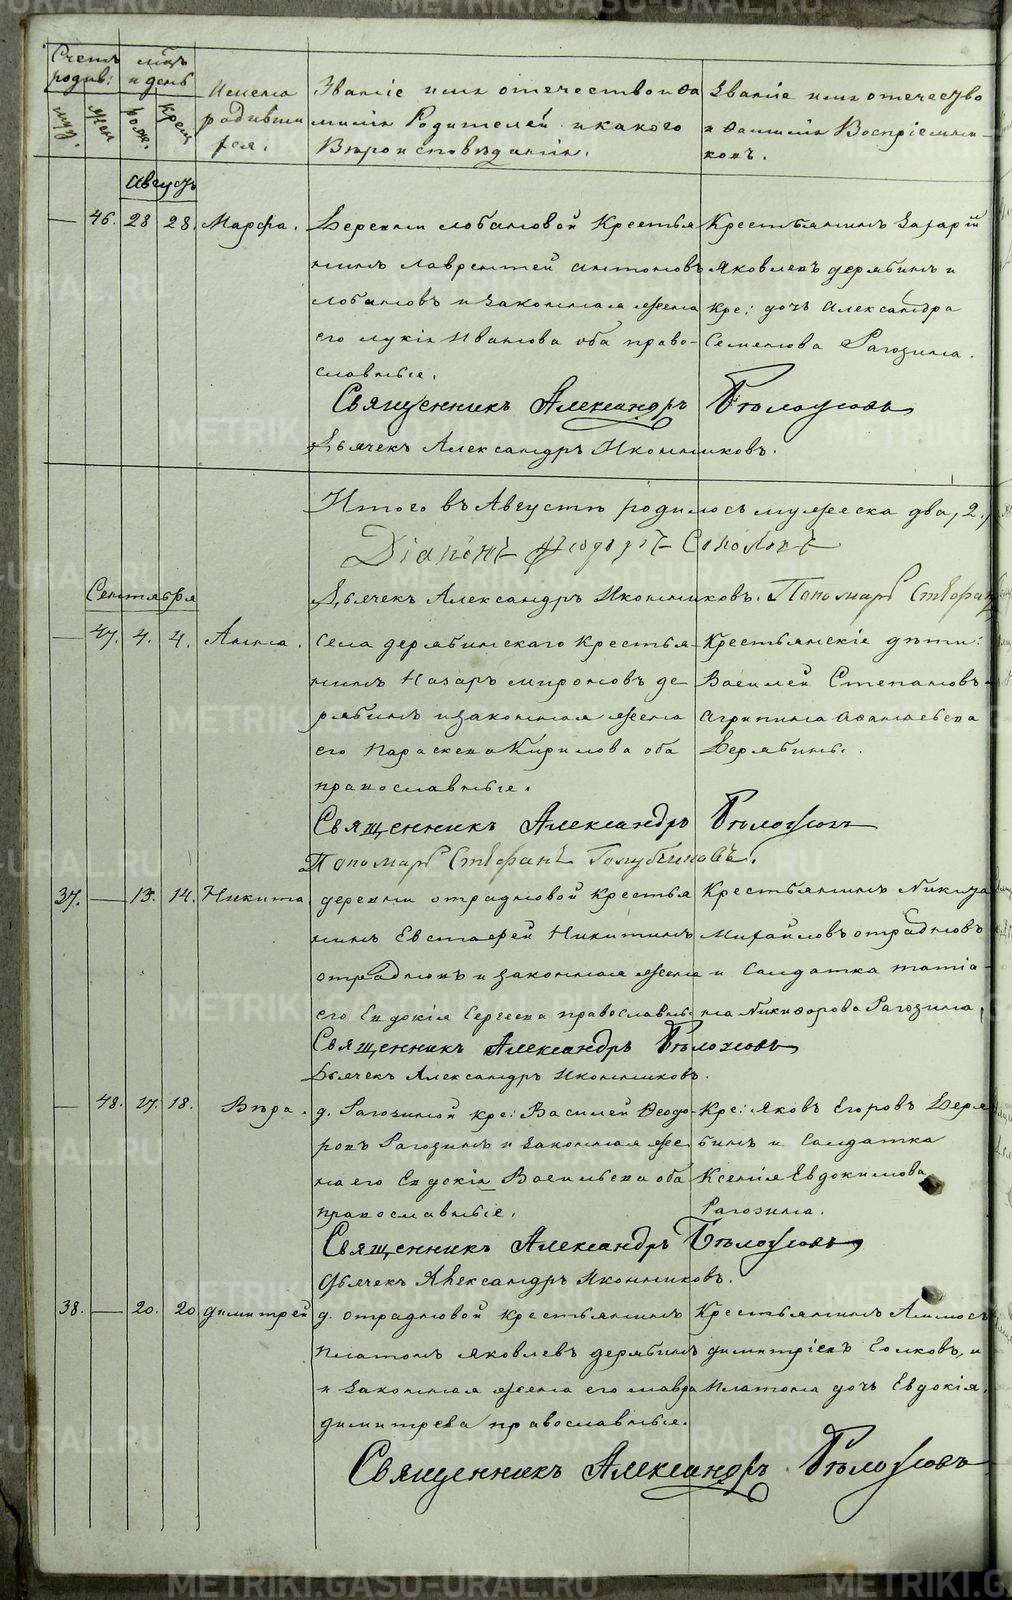 Счетъ родив:
муж.
жен
мѣцъ и день
рож.
крещ
Имена родивши
ѳся.
Званіе имя отечество и Фа
миліи Родителей и какого
Вѣроисповѣданія.
Званіе имя отечество
и Фамилія Воспріемни-
ковъ.
Августъ
— 46. 28 28. Марфа.
Деревни лобановой Крестья
нинъ лаврентей антоновъ
лобановъ и законная жена
его лукія Иванова оба право-
славные.
Крестьянинъ Захарій
Яковлевъ дерябинъ и
кре: дочь Александра
Семенова Рагозина.
Священникъ Александръ Бѣлоусовъ
Дьячекъ Александръ Иконниковъ.
Итого въ Августѣ родилось мужеска два, 2,
Діаконъ Ѳеодоръ Соколовъ
Дьячекъ Александръ Иконниковъ. Пономарь Стефанъ
Сентября
— 47. 4. 4. Анна.
Села дерябинскаго Крестья-
нинъ Назаръ мироновъ де-
рябинъ и законная жена
его Параскева Кирилова оба
православные.
Крестьянскіе дѣти:
Василей Степановъ и
Агрипина Афанасьева
Дерябины.
Священникъ Александръ Бѣлоусовъ
Пономарь Стефанъ Голубчиковъ.
37. — 13. 14. Никита
деревни отрадновой Крестья
нинъ Евстафей Никитинъ
отрадновъ и законная жена
его Евдокія Сергеева православны
Крестьянинъ Никита
Михайловъ отрадновъ
и Салдатка татіа-
на Никифорова Рагозина,
Священникъ Александръ Бѣлоусовъ
Дьячекъ Александръ Иконниковъ.
— 48. 17. 18. Вѣра.
д. Рагозиной кре: Василей Феодо-
ровъ Рагозинъ и законная же
на его Евдокія Васильева оба
православные.
Кре: Яковъ Егоровъ Деря
бинъ и Салдатка
Ксенія Евдокимова
Рагозина.
Священникъ Александръ Бѣлоусовъ
Дьячекъ Александръ Иконниковъ.
38. — 20. 20. димитрей
д. отрадновой крестьянинъ
Платонъ Яковлевъ дерябинъ
и законная жена его мавра
димитрева православные.
Крестьянинъ
димитріевъ и
Платона дочь Евдокія.
Священникъ Александръ Бѣлоусовъ
METRIKI.GASO-URAL.RU